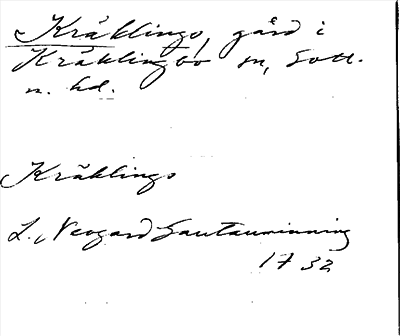 Kräklings, gård i
Kräklingbo sn, Gotl.
n. hd.
Kräklings
L. Neogard Gautauminning
1732